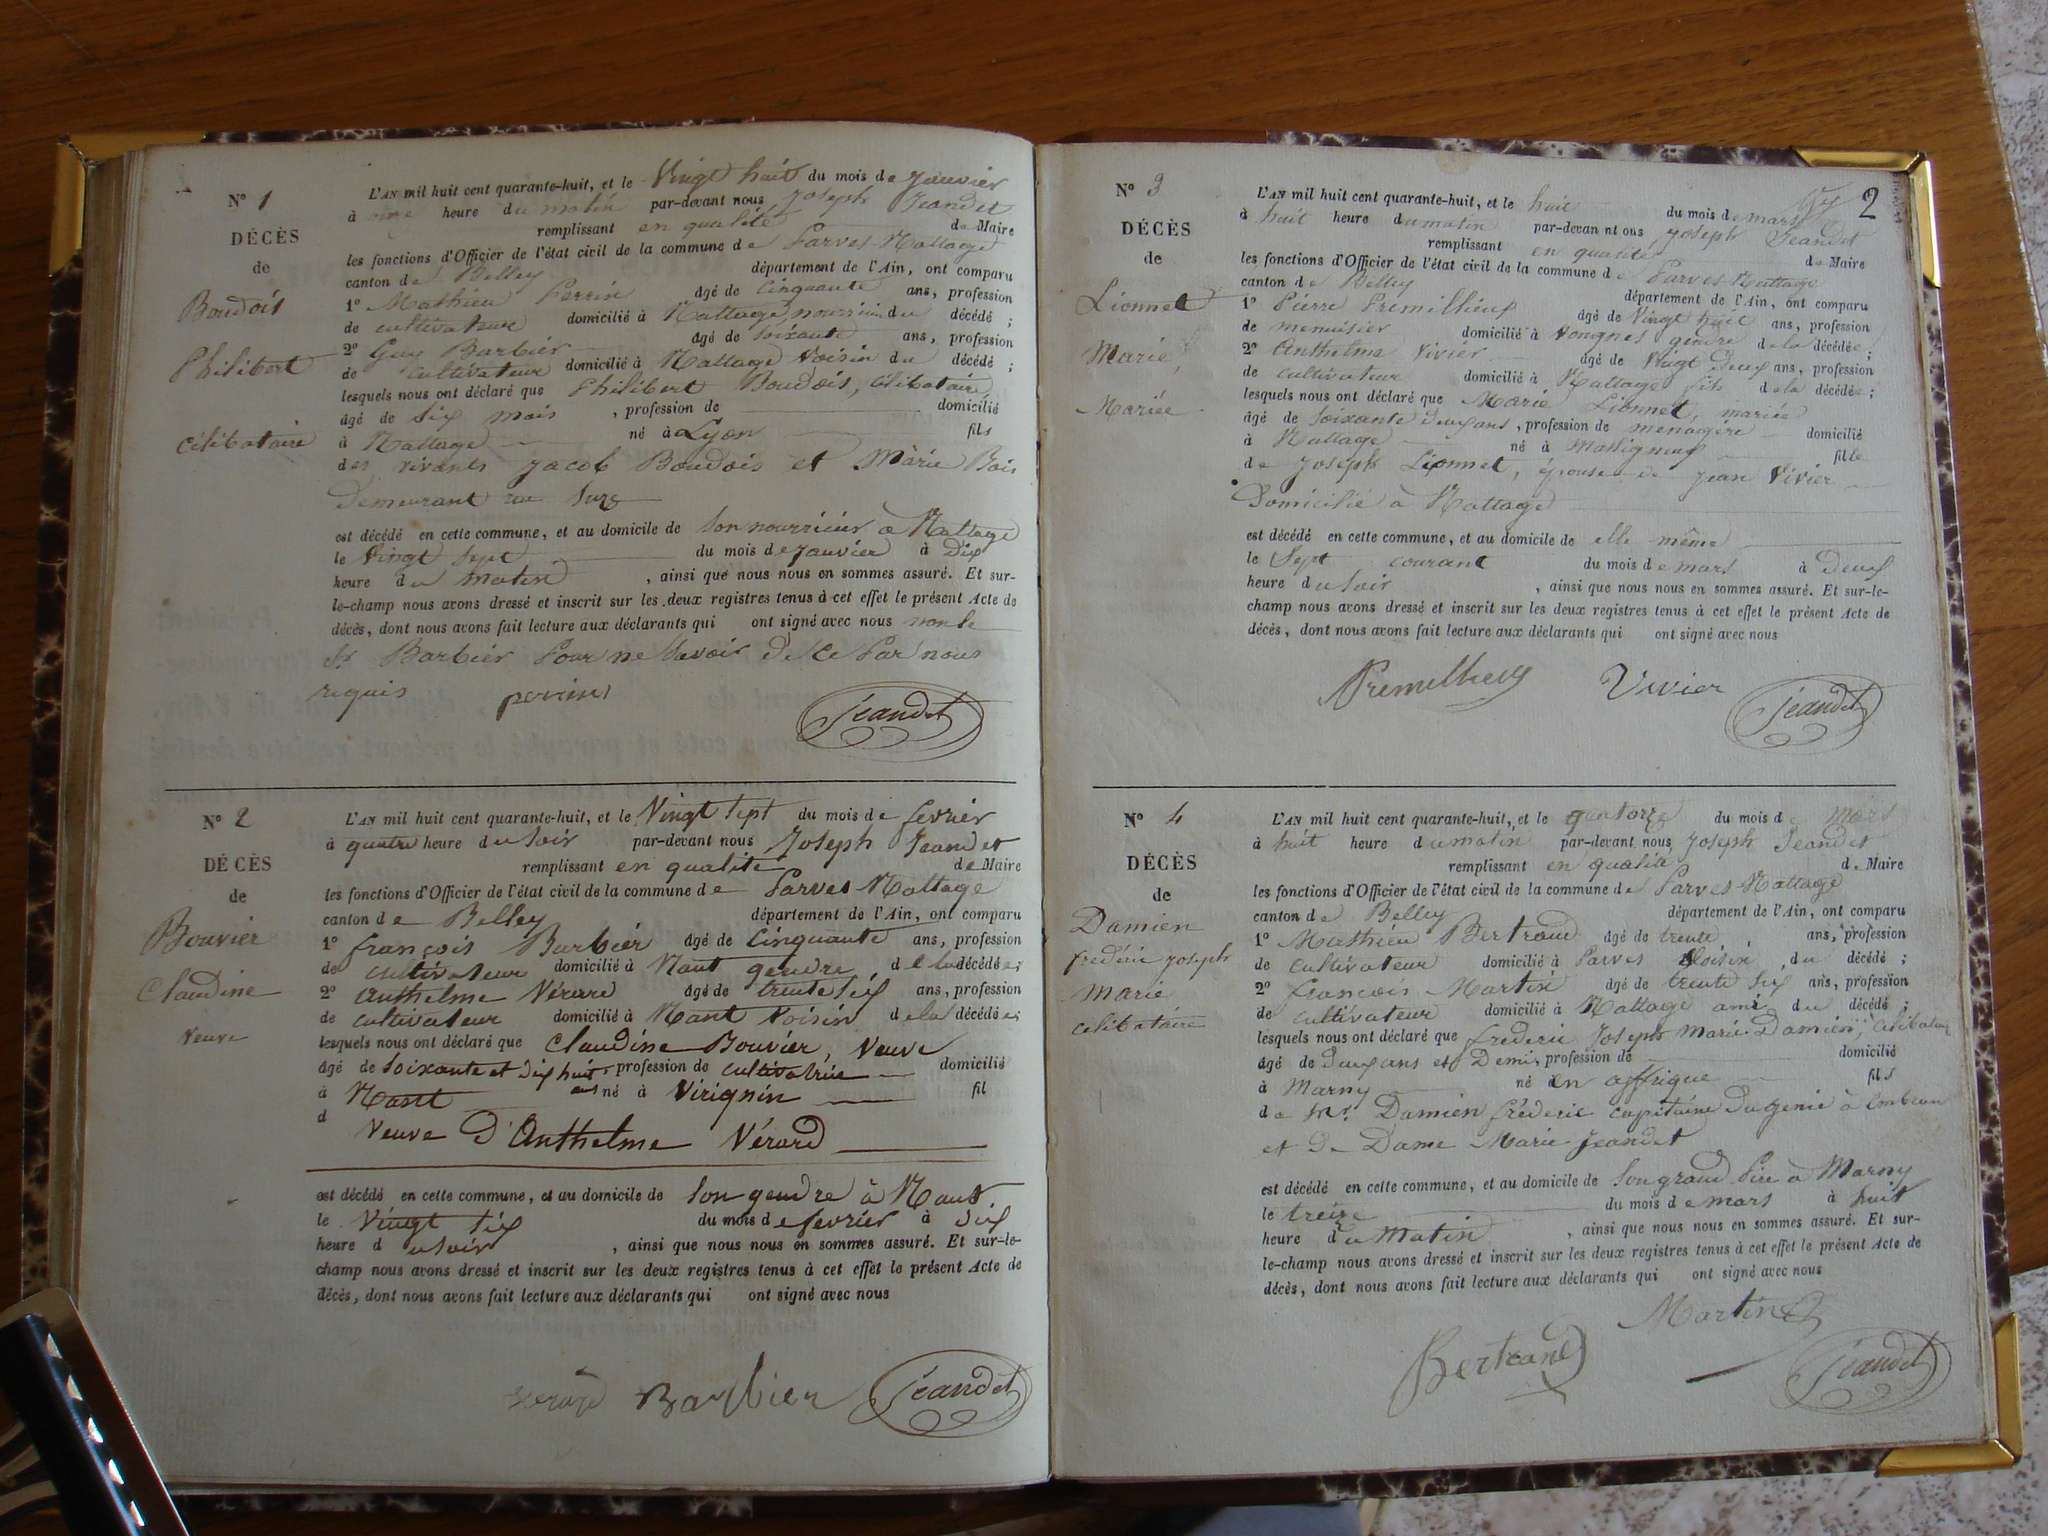 N° 1
DÉCÈS
de
Boudois
Philibert
célibataire
L'AN mil huit cent quarante-huit, et le Vingt huit du mois de Janvier
à onze heure du matin par-devant nous Joseph Jeandet
remplissant en qualité de Maire
les fonctions d'Officier de l'état civil de la commune de Parves-Nattage
canton de Belley département de l'Ain, ont comparu
1° Mathieu Perrin âgé de Cinquante ans, profession
de cultivateur domicilié à Nattage, nourricier du décédé ;
2° Guy Barbier âgé de Soixante ans, profession
de cultivateur domicilié à Nattage Voisin du décédé ;
lesquels nous ont déclaré que Philibert Boudois, célibataire,
âgé de Six mois , profession de domicilié
à Nattage né à Lyon fils
des vivants Jacob Boudois et Marie Bois
Demeurant rue
est décédé en cette commune, et au domicile de Son nourricier à Nattage
le Vingt Sept du mois de Janvier à Dix
heure du matin , ainsi que nous nous en sommes assuré. Et sur-
le-champ nous avons dressé et inscrit sur les deux registres tenus à cet effet le présent Acte de
décès, dont nous avons fait lecture aux déclarants qui ont signé avec nous non le
Sr Barbier Pour ne Savoir De ce Par nous
requis perrin Jeandet
N° 2
DÉCÈS
de
Bouvier
Claudine
Veuve
L'AN mil huit cent quarante-huit, et le Vingt Sept du mois de fevrier
à quatre heure du Soir par-devant nous Joseph Jeandet
remplissant en qualité de Maire
les fonctions d'Officier de l'état civil de la commune de Parves Nattage
canton de Belley département de l'Ain, ont comparu
1° françois Barbier âgé de Cinquante ans, profession
de cultivateur domicilié à Nant gendre de la décédée ;
2° Anthelme Vérard âgé de trente Six ans, profession
de cultivateur domicilié à Nant Voisin de la décédée ;
lesquels nous ont déclaré que Claudine Bouvier, Veuve
âgé de Soixante et Dix huit ans profession de cultivatrice domicilié
à Nant né à Virignin fil
d
Veuve D'Anthelme Vérard
est décédé en cette commune, et au domicile de Son gendre à Nant
le Vingt Six du mois de fevrier à Six
heure du Soir , ainsi que nous nous en sommes assuré. Et sur-le-
champ nous avons dressé et inscrit sur les deux registres tenus à cet effet le présent Acte de
décès, dont nous avons fait lecture aux déclarants qui ont signé avec nous
verard Barbier Jeandet
2
N° 3
DÉCÈS
de
Lionnet
Marie,
Mariée
L'AN mil huit cent quarante-huit, et le huit du mois de mars
à huit heure du matin par-devant nous Joseph Jeandet
remplissant en qualité de Maire
les fonctions d'Officier de l'état civil de la commune de Parves-Nattage
canton de Belley département de l'Ain, ont comparu
1° Pierre Premillieux âgé de Vingt huit ans, profession
de menuisier domicilié à Vongnes gendre de la décédée ;
2° Anthelme Vivier âgé de Vingt Deux ans, profession
de cultivateur domicilié à Nattage fils de la décédée ;
lesquels nous ont déclaré que Marie Lionnet, mariée
âgé de Soixante deux ans, profession de menagère domicilié
à Nattage né à Massigneux fille
de Joseph Lionnet, épouse de Jean Vivier
Domicilié à Nattage
est décédé en cette commune, et au domicile de elle même
le Sept courant du mois de mars à Deux
heure du Soir , ainsi que nous nous en sommes assuré. Et sur-le-
champ nous avons dressé et inscrit sur les deux registres tenus à cet effet le présent Acte de
décès, dont nous avons fait lecture aux déclarants qui ont signé avec nous
Premillieux Vivier Jeandet
N° 4
DÉCÈS
de
Damien
fréderic Joseph
Marie
célibataire
L'AN mil huit cent quarante-huit, et le quatorze du mois de Mars
à huit heure du matin par-devant nous Joseph Jeandet
remplissant en qualité de Maire
les fonctions d'Officier de l'état civil de la commune de Parves-Nattage
canton de Belley département de l'Ain, ont comparu
1° Mathieu Bertrand âgé de trente ans, profession
de cultivateur domicilié à Parves Voisin du décédé ;
2° françois Martin âgé de trente Six ans, profession
de cultivateur domicilié à Nattage ami du décédé ;
lesquels nous ont déclaré que fréderic Joseph Marie Damien, célibataire
âgé de Deux ans et Demi, profession de domicilié
à Marny né en affrique fils
de Mr. Damien fréderic capitaine du genie à Embrun
et De Dame Marie Jeandet
est décédé en cette commune, et au domicile de Son grand Père à Marny
le treize du mois de mars à huit
heure du Matin , ainsi que nous nous en sommes assuré. Et sur-
le-champ nous avons dressé et inscrit sur les deux registres tenus à cet effet le présent Acte de
décès, dont nous avons fait lecture aux déclarants qui ont signé avec nous
Martin
Bertrand Jeandet